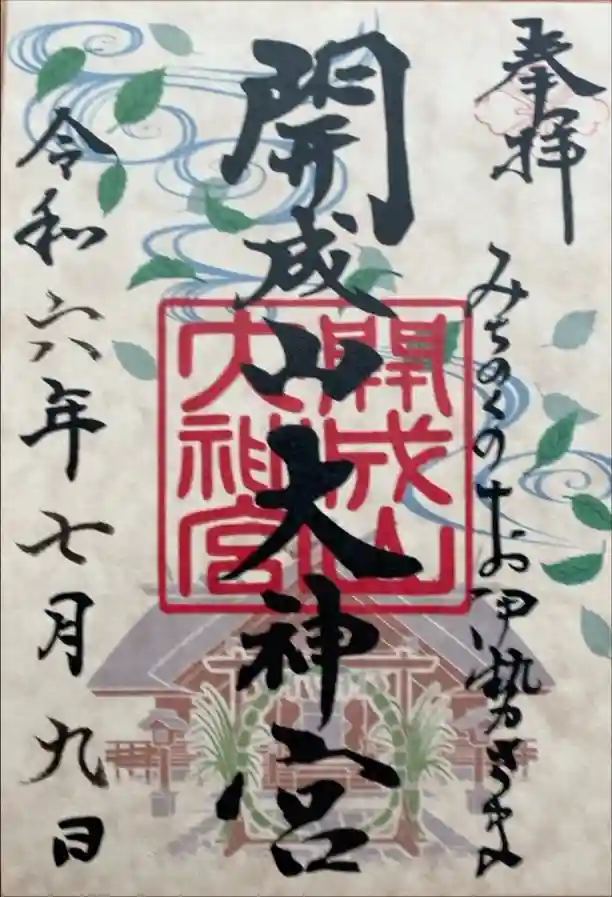 奉拝
みちのくのお伊勢さま
開成山大神宮
開成山
大神宮
令和六年七月九日